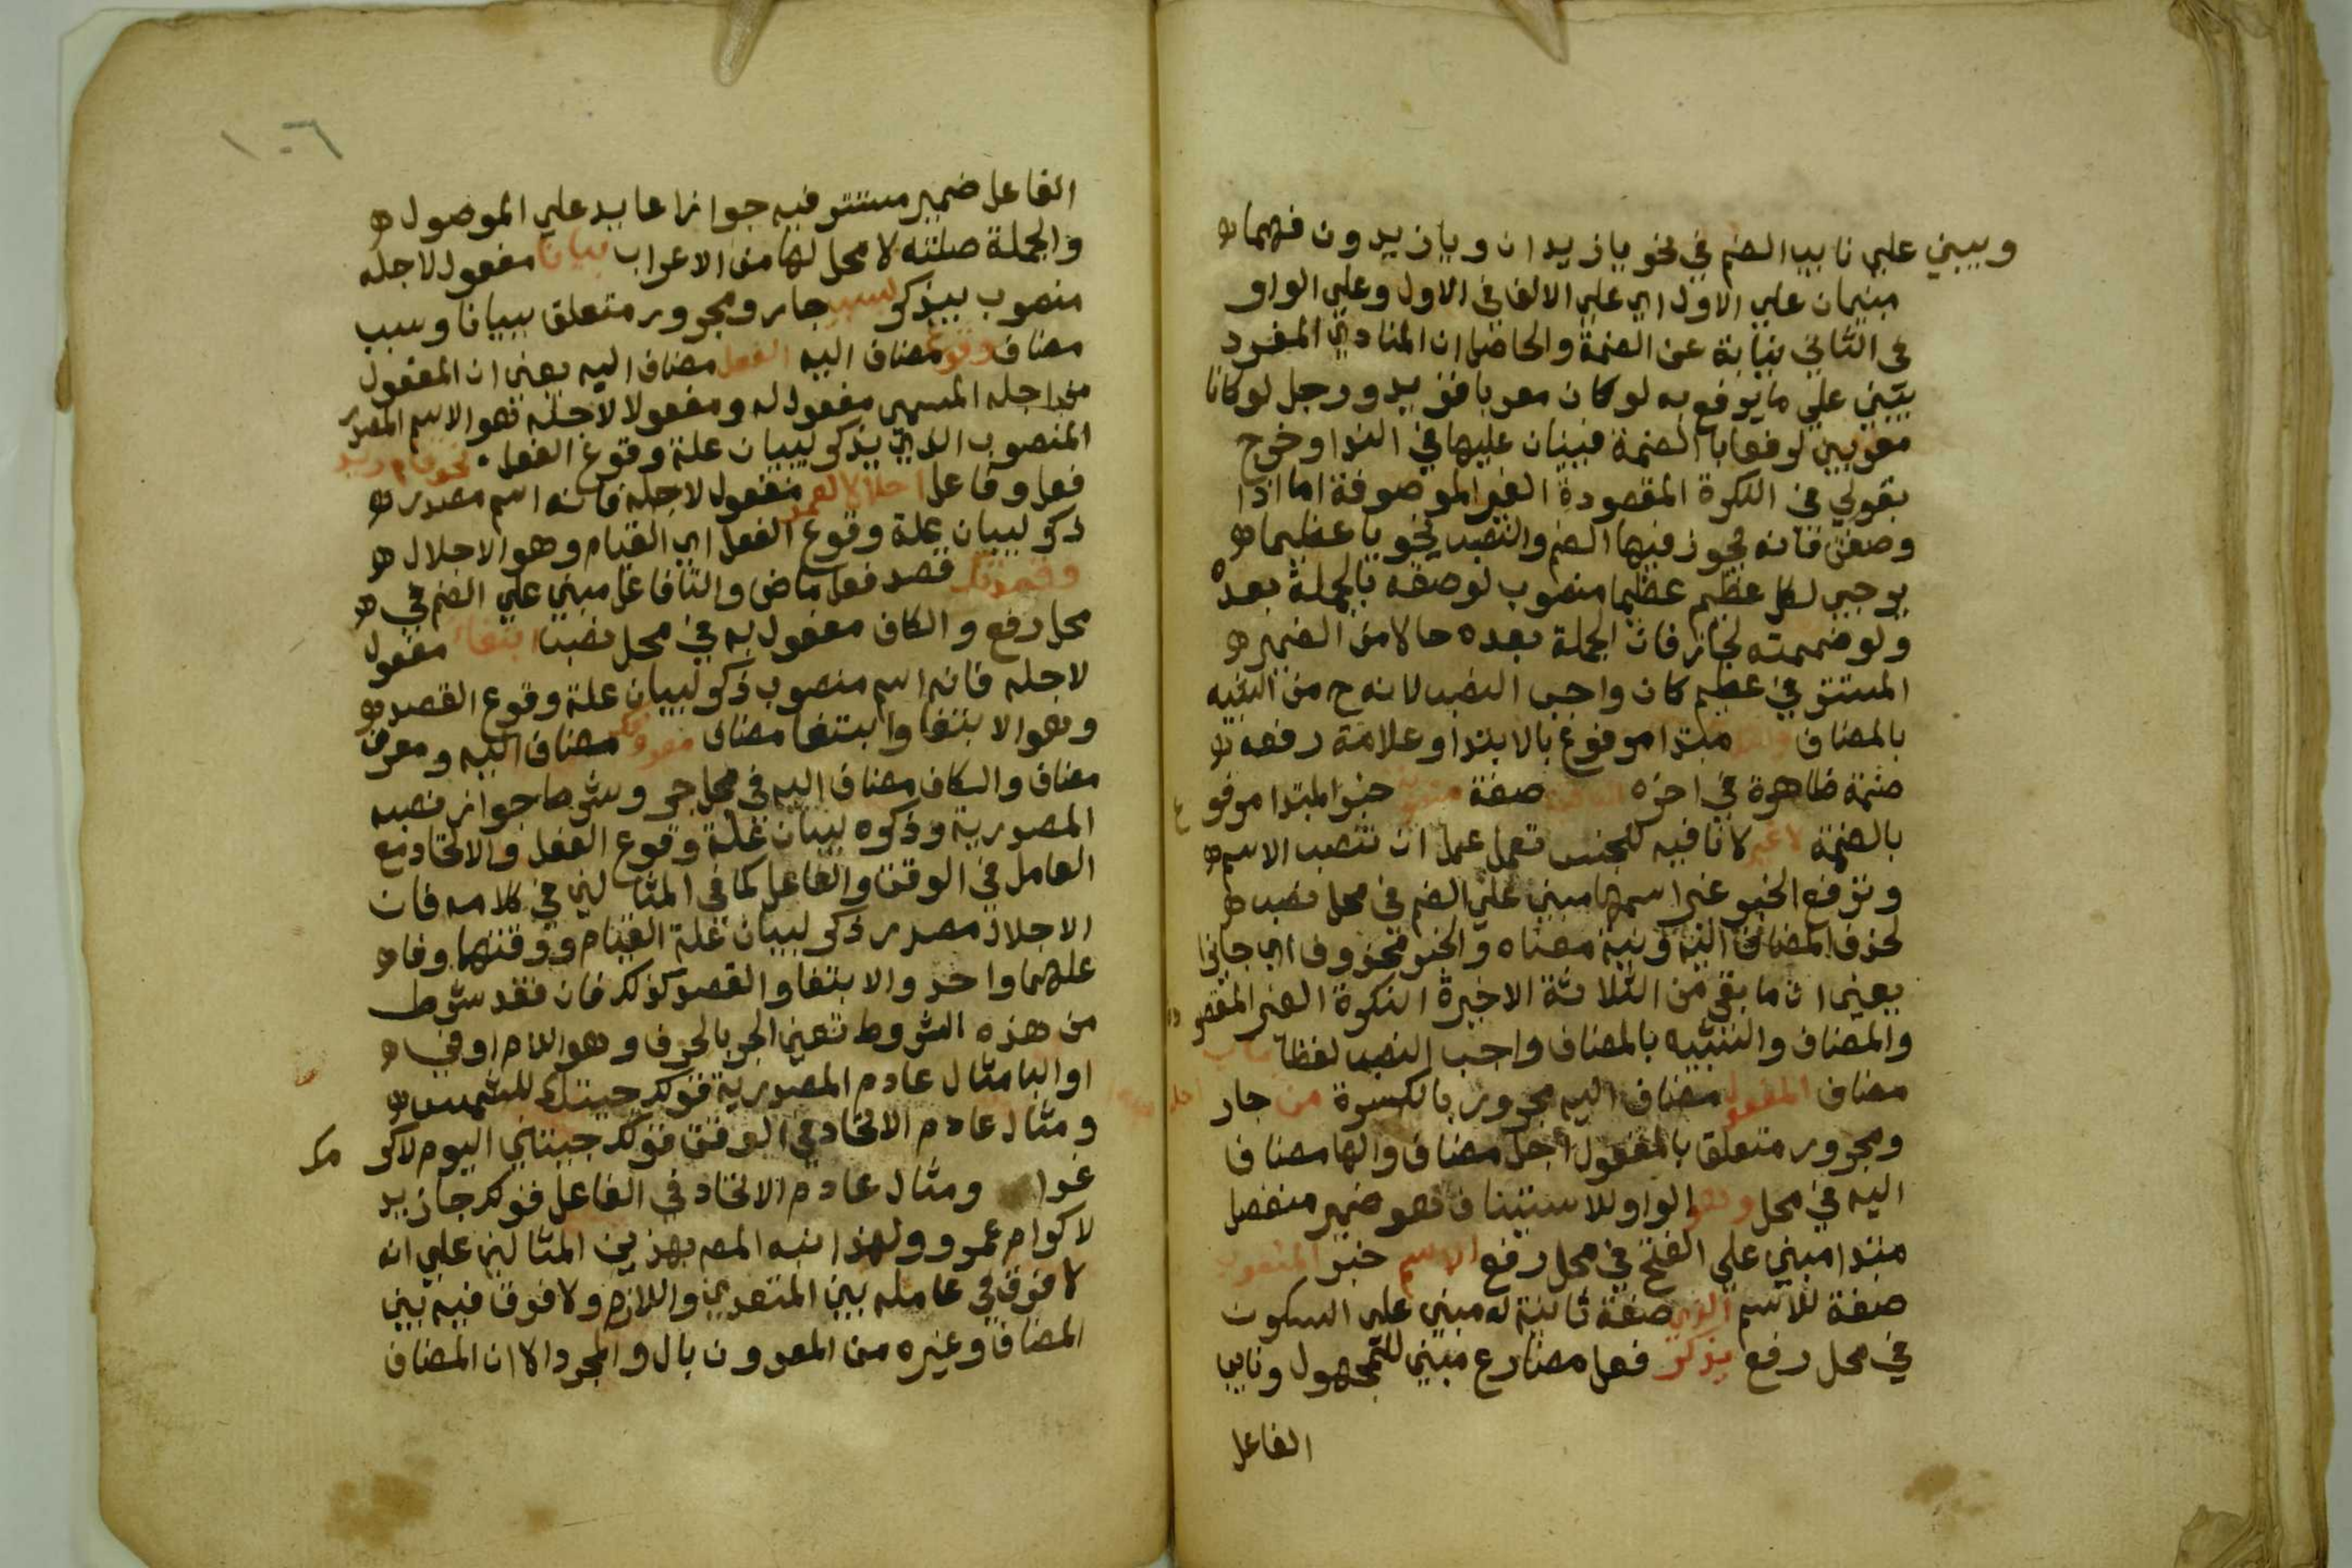 ويبني علي نايب الضم في نحو يا زيدان ويا زيدون فهما
مبنيان علي الاول اي علي الالف في الاول وعلي الواو
في الثاني نيابة عن الضمة والحاصل ان المنادي المفرد
يبني علي ما يرفع به لو كان معربا فزيد ورجل لو كانا
معربين لرفعا بالضمة فبنيان عليها في الندا وخرج
بقولي في النكرة المقصودة الغير الموصوفة اما اذا
وصفت فانه يجوز فيها الضم والنصب نحو يا عظيما
يرجي لكل عظيم عظيما منصوب لوصفه بالجملة بعده
ولو ضممته لجاز فان الجملة بعده حالا من الضمير
المستتر في عظيم كان واجب النصب لانه ح من الشبيه
بالمضاف مبتدا مرفوع بالابتدا وعلامة رفعه
ضمة ظاهرة في اخره صفة خبر المبتدا مرفوع
بالضمة لا غير لا نافيه للجنس تعمل عمل ان تنصب الاسم
وترفع الخبر غير اسمها مبني علي الضم في محل نصب
لحذف المضاف اليه ونية معناه والخبر محذوف اي جايزا
يعني ان ما بقي من الثلاثة الاخيرة النكرة الغير المقصوده
والمضاف والشبيه بالمضاف واجب النصب لفظا باب
مضاف المفعول مضاف اليه مجرور بالكسرة من جار
ومجرور متعلق بالمفعول اجل مضاف والها مضاف
اليه في محل وهو الواو للاستيناف هو ضمير منفصل
مبتدا مبني علي الفتح في محل رفع الاسم خبر المنصوب
صفة للاسم الذي صفة ثانية له مبني علي السكون
في محل رفع يذكر فعل مضارع مبني للمجهول ونايب
الفاعل
١٠٦
الفاعل ضمير مستتر فيه جوازا عايد علي الموصول
والجملة صلته لا محل لها من الاعراب بيانا مفعول لاجله
منصوب بيذكر لسبب جار ومجرور متعلق ببيانا وسبب
مضاف وقوع مضاف اليه الفعل مضاف اليه يعني ان المفعول
من اجله المسمي مفعول له ومفعولا لاجله هو الاسم المصدر
المنصوب الذي يذكر لبيان علة وقوع الفعل نحو قام زيد
فعل وفاعل اجلالا لعمرو مفعول لاجله فانه اسم مصدر
ذكر لبيان علة وقوع الفعل اي القيام وهو الاجلال
وقصدتك قصد فعل ماض والتا فاعل مبني علي الضم في
محل رفع والكاف مفعول به في محل نصب ابتغاء مفعول
لاجله فانه اسم منصوب ذكر لبيان علة وقوع القصد
وهو الابتغا وابتغا مضاف معروفك مضاف اليه ومعروف
مضاف والكاف مضاف اليه في محل جر وشرط جواز نصبه
المصدرية وذكره لبيان علة وقوع الفعل والاتحاد مع
العامل في الوقت والفاعل كما في المثالين في كلامه فان
الاجلال مصدر ذكر لبيان علة القيام ووقتهما وفا
علهما واحد والابتغا والقصد كذلك فان فقد شرط
من هذه الشروط تعين الجر بالحرف وهو اللام او في
او البا مثال عادم المصدرية قولك جيتك للسمن
ومثال عادم الاتحاد في الوقت قولك جيتني اليوم لاكر
مك
غدا ومثال عادم الاتحاد في الفاعل قولك جا زيد
لاكرام عمرو ولهذا نبه المص بهذين المثالين علي انه
لا فرق في عامله بين المتعدي واللازم ولا فرق فيه بين
المضاف وغيره من المعرون بال والمجرد الا ان المضاف